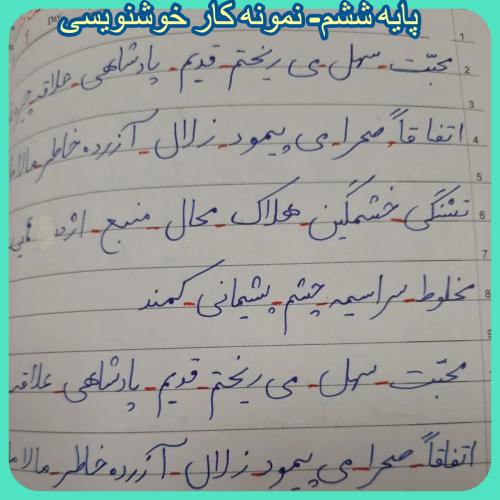 پایه ششم- نمونه کار خوشنویسی
محبّت - سهل - می ریختم - قدیم - پادشاهی - علاقه
اتفاقاً - صحرا - می پیمود - زلال - آزرده خاطر - مالاما
تشنگی - خشمگین - هلاک - محال - منبع
مخلوط - سراسیمه - چشم - پشیمانی - کمند
محبّت - سهل - می ریختم - قدیم - پادشاهی - علاقه
اتفاقاً - صحرا - می پیمود - زلال - آزرده خاطر - مالاما